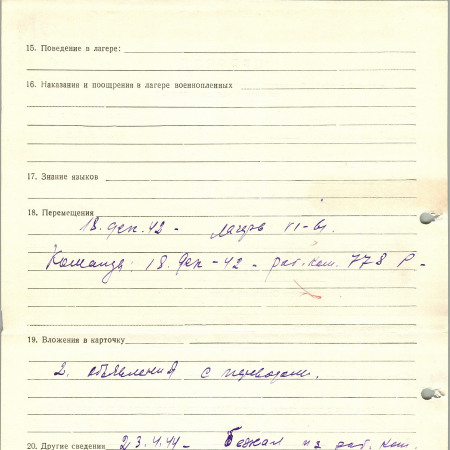 15. Поведение в лагере:
16. Наказания и поощрения в лагере военнопленных
17. Знание языков
18. Перемещения
18. дек. 42 - лагерь VI-
Команда: 18. Дек - 42 - раб. ком. 778 Р -
19. Вложения в карточку
2. объявления с переводом.
20. Другие сведения 23.4.44 - Бежал из раб. ком.